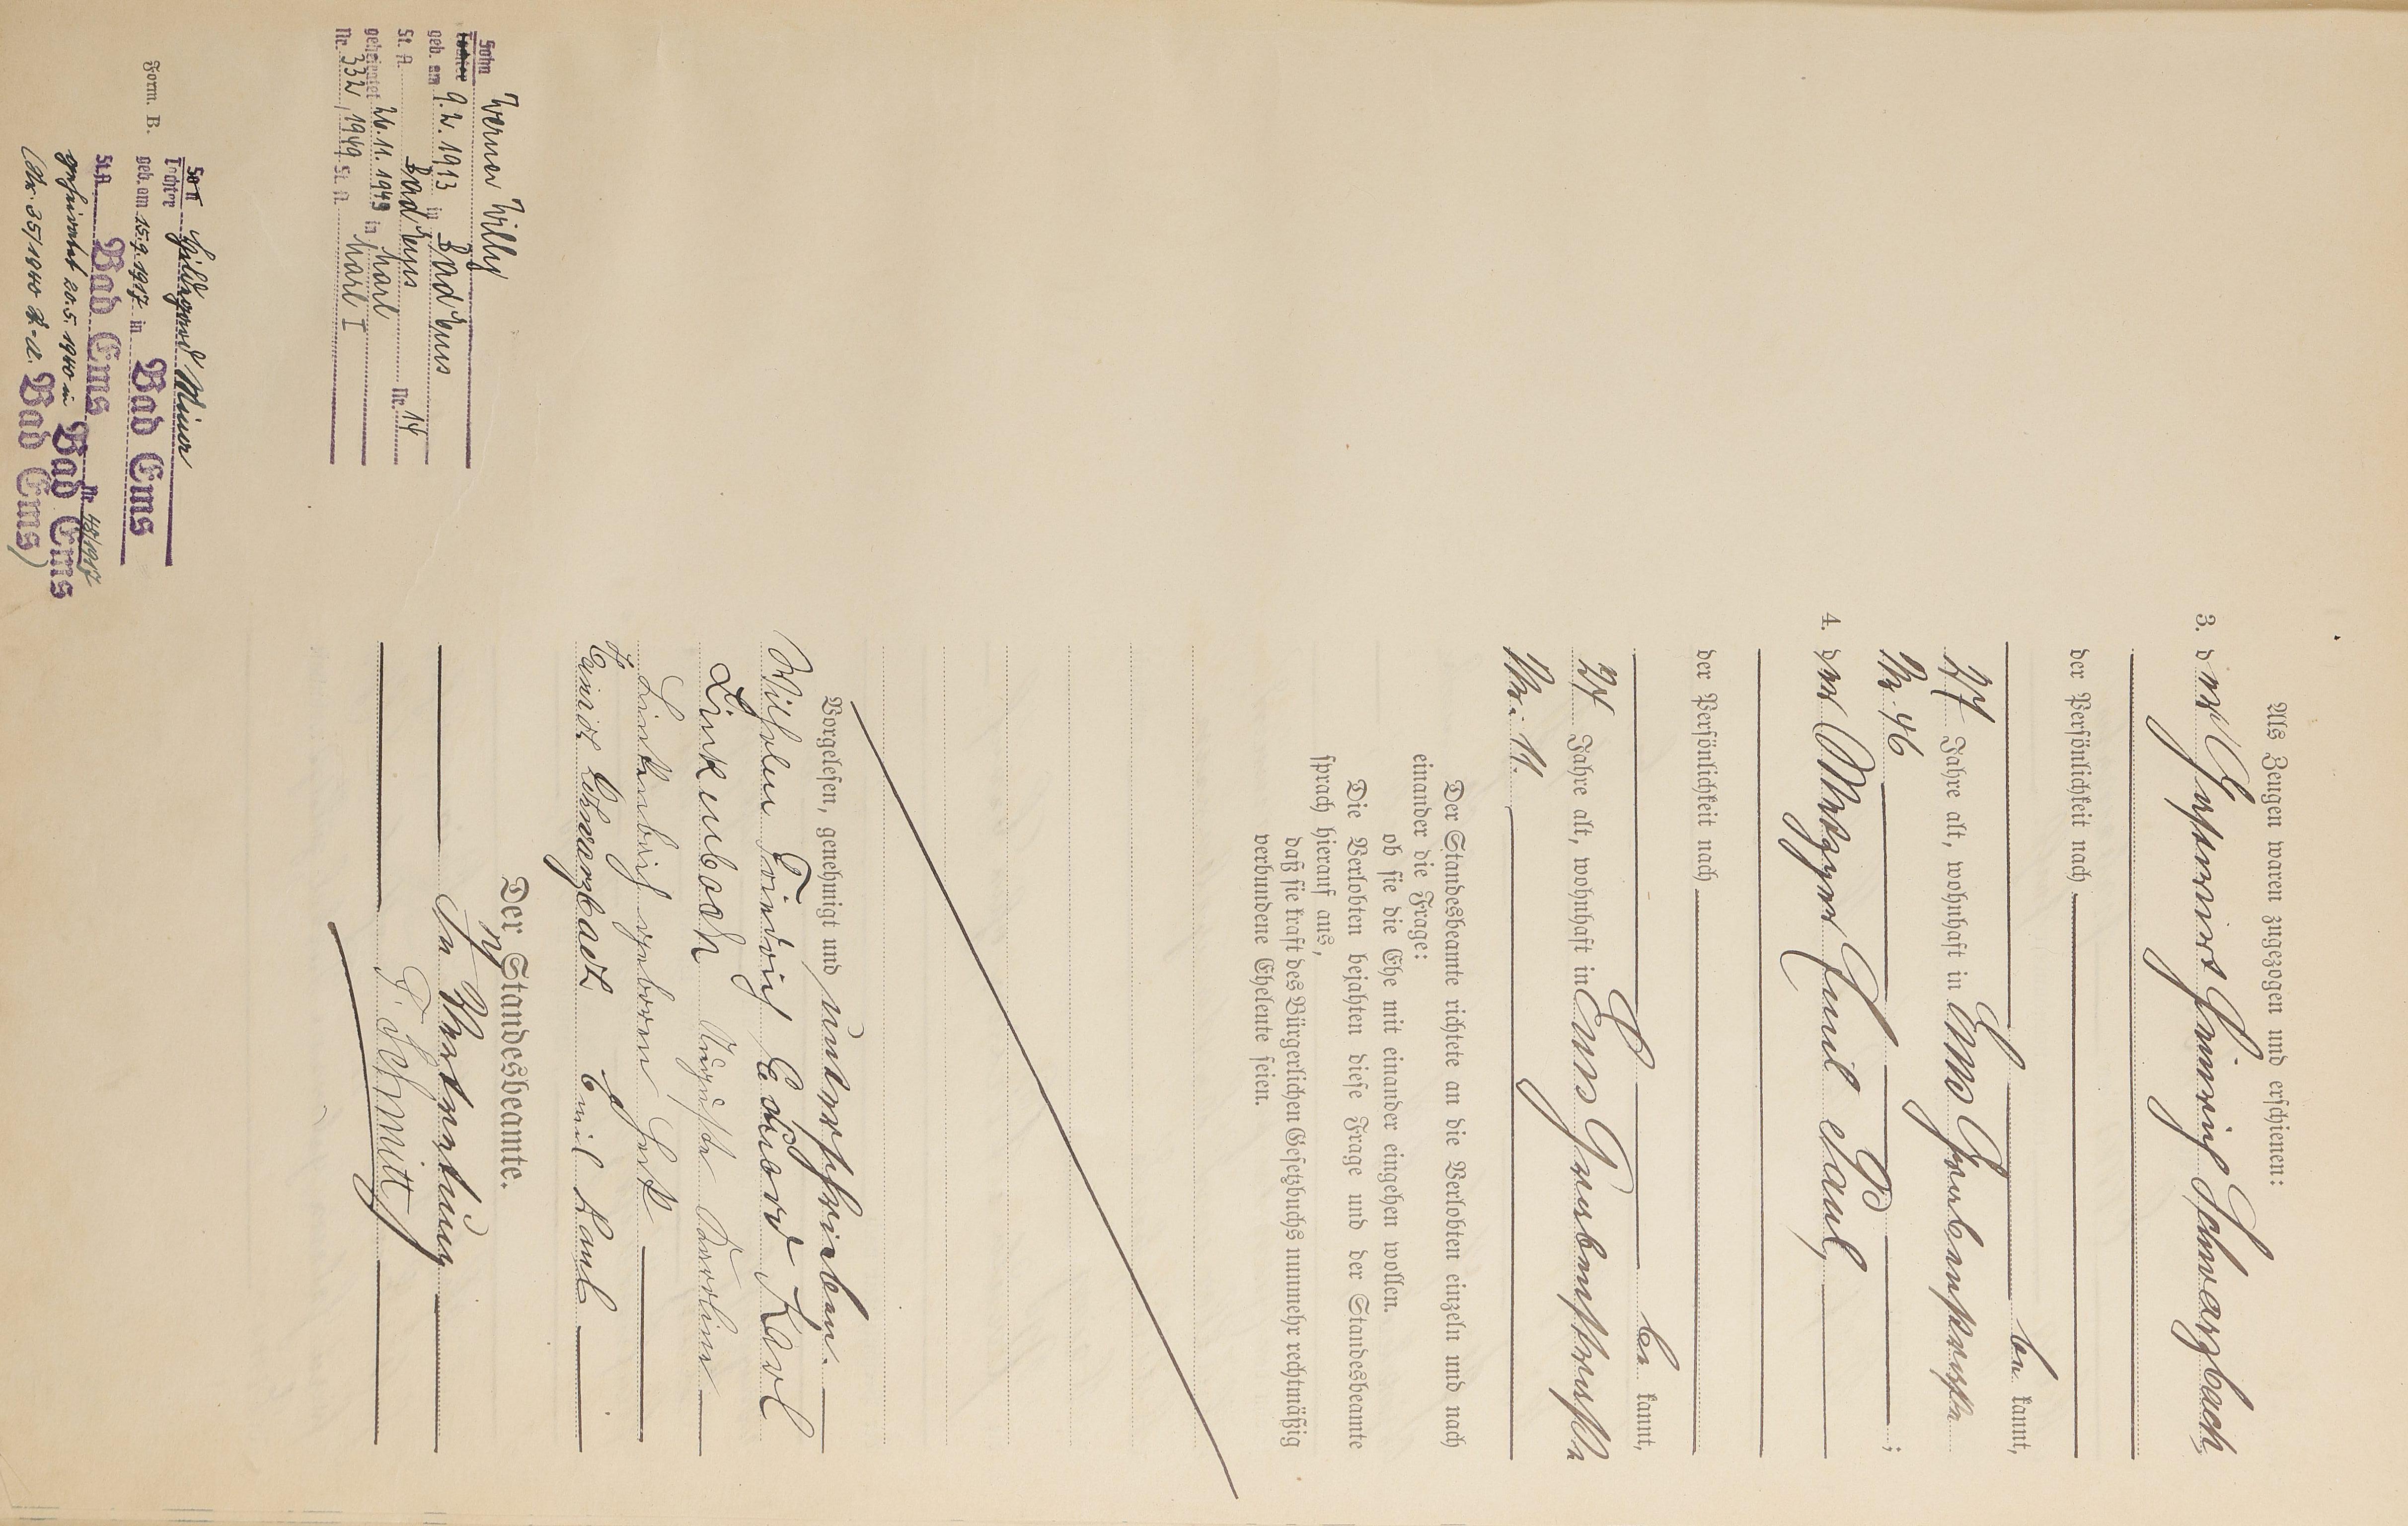 Als Zeugen waren zugezogen und erschienen:
3. der Heinrich Schwarzbach,
der Persönlichkeit nach
be kannt,
27 Jahre alt, wohnhaft in Ems Grabenstraße
Nr. 46 ;
4. der Metzger Emil Paul,
der Persönlichkeit nach
be kannt,
24 Jahre alt, wohnhaft in Ems Grabenstraße
Nr. 11.
Der Standesbeamte richtete an die Verlobten einzeln und nach
einander die Frage:
ob sie die Ehe mit einander eingehen wollen.
Die Verlobten bejahten diese Frage und der Standesbeamte
sprach hierauf aus,
daß sie kraft des Bürgerlichen Gesetzbuchs nunmehr rechtmäßig
verbundene Eheleute seien.
Vorgelesen, genehmigt und unterschrieben.
Wilhelm Friedrich Eduard Karl
Linkenbach Auguste Karoline
Linkenbach geboren
Heinrich Schwarzbach Emil Paul
Der Standesbeamte.
In Vertretung
F. Schmitt
Werner Willy
Sohn
Tochter
geb. am 9.2.1913 in Bad Ems
St. A. Bad Ems Nr. 14
geheiratet 26.11.1949 in Marl
Nr. 332/1949 St. A. Marl I
Form. B.
Sohn
Tochter Hildegard Minor
geb. am 15.9.1917 in Bad Ems
St.A. Bad Ems Nr. 48/1917
geheiratet 20.5.1940 in Bad Ems
(Nr. 35/1940 St.-A. Bad Ems)